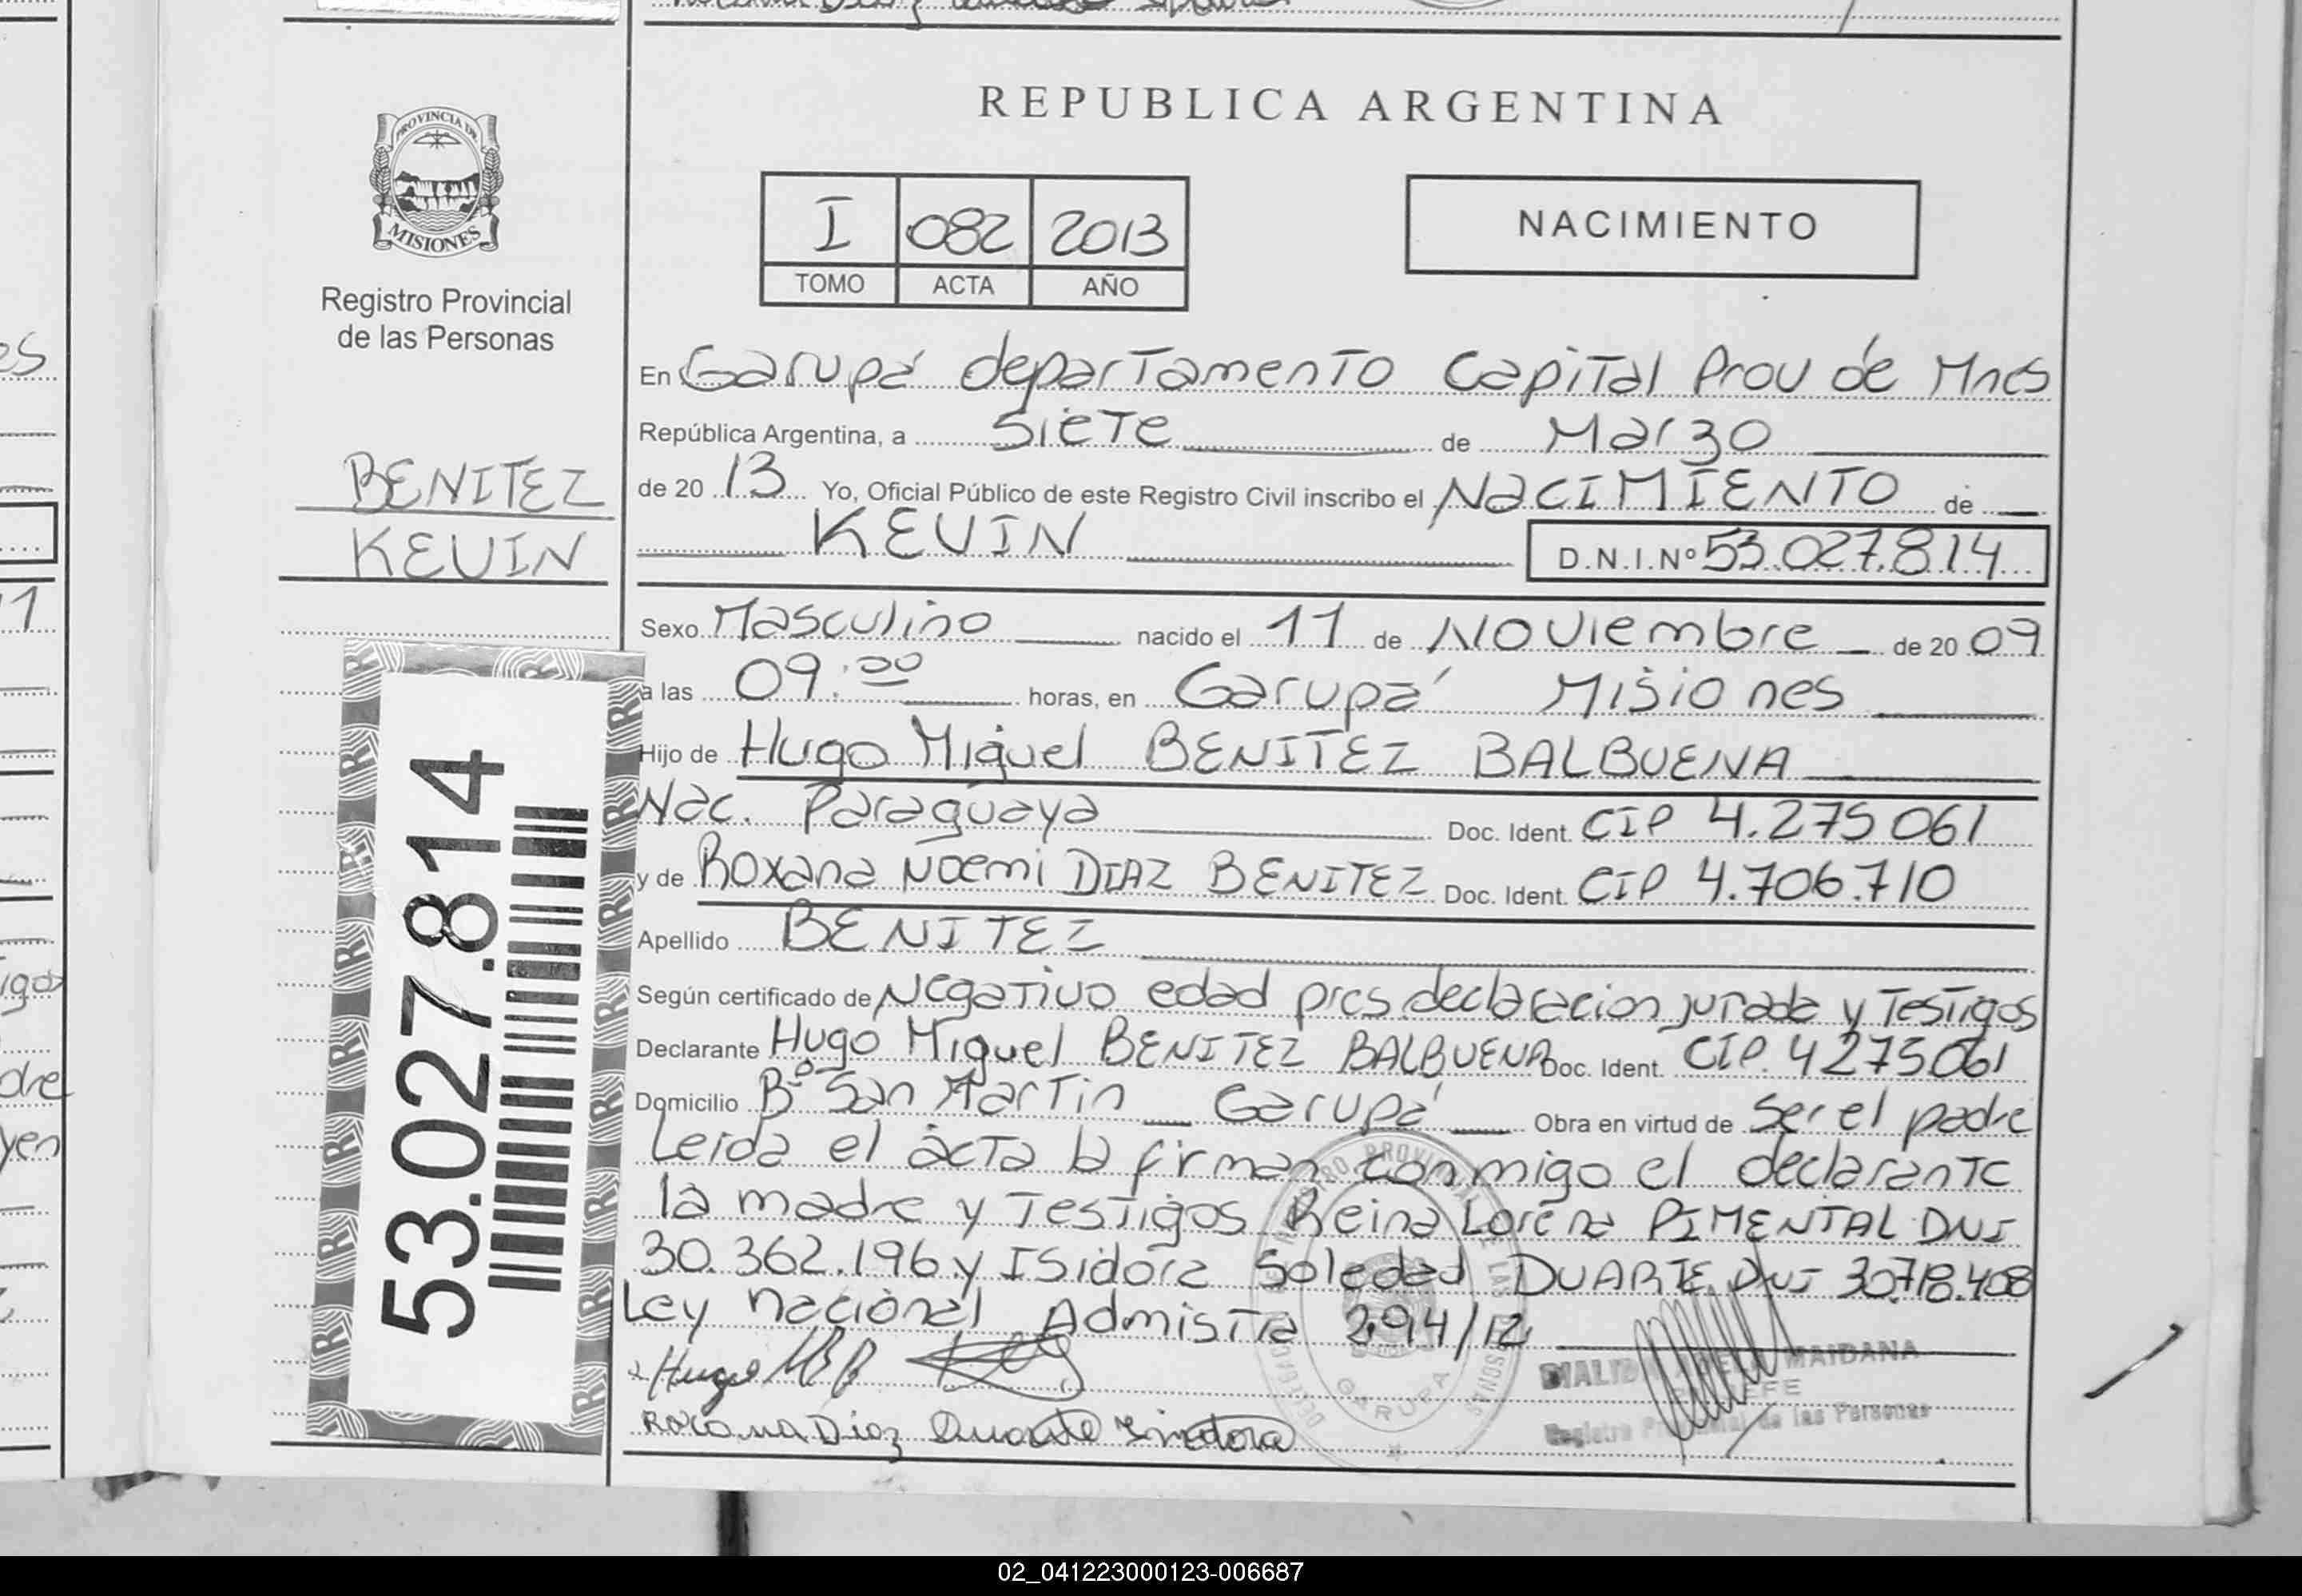 REPUBLICA ARGENTINA
PROVINCIA DE
MISIONES
Registro Provincial
de las Personas
I 082 2013
TOMO ACTA AÑO
NACIMIENTO
BENITEZ
KEVIN
53.027.814
En Garupá departamento Capital Prov de Mnes
República Argentina, a siete de Marzo
de 20 13 Yo, Oficial Público de este Registro Civil inscribo el NACIMIENTO de
KEVIN D.N.I.Nº 53.027.814
Sexo Masculino nacido el 11 de Noviembre de 20 09
a las 09:00 horas, en Garupá Misiones
Hijo de Hugo Miguel BENITEZ BALBUENA
Nac. Paraguaya Doc. Ident. CIP 4.275061
y de Roxana Noemi DIAZ BENITEZ Doc. Ident. CIP 4.706.710
Apellido BENITEZ
Según certificado de Negativo edad pres. declaracion jurada y Testigos
Declarante Hugo Miguel BENITEZ BALBUENA Doc. Ident. CIP. 4275061
Domicilio Bº San Martin Garupá Obra en virtud de ser el padre
Leida el acta la firman conmigo el declarante
la madre y Testigos Reina Lorena PIMENTAL DNI
30.362.196 y Isidora Soledad DUARTE DNI 30.718.408
Ley nacional Admistra 294/12
Hugo M B B
Roxana Diaz Duarte Isidora
MAIDANA
JEFE
Registro Provincial de las Personas
GARUPA
02_041223000123-006687